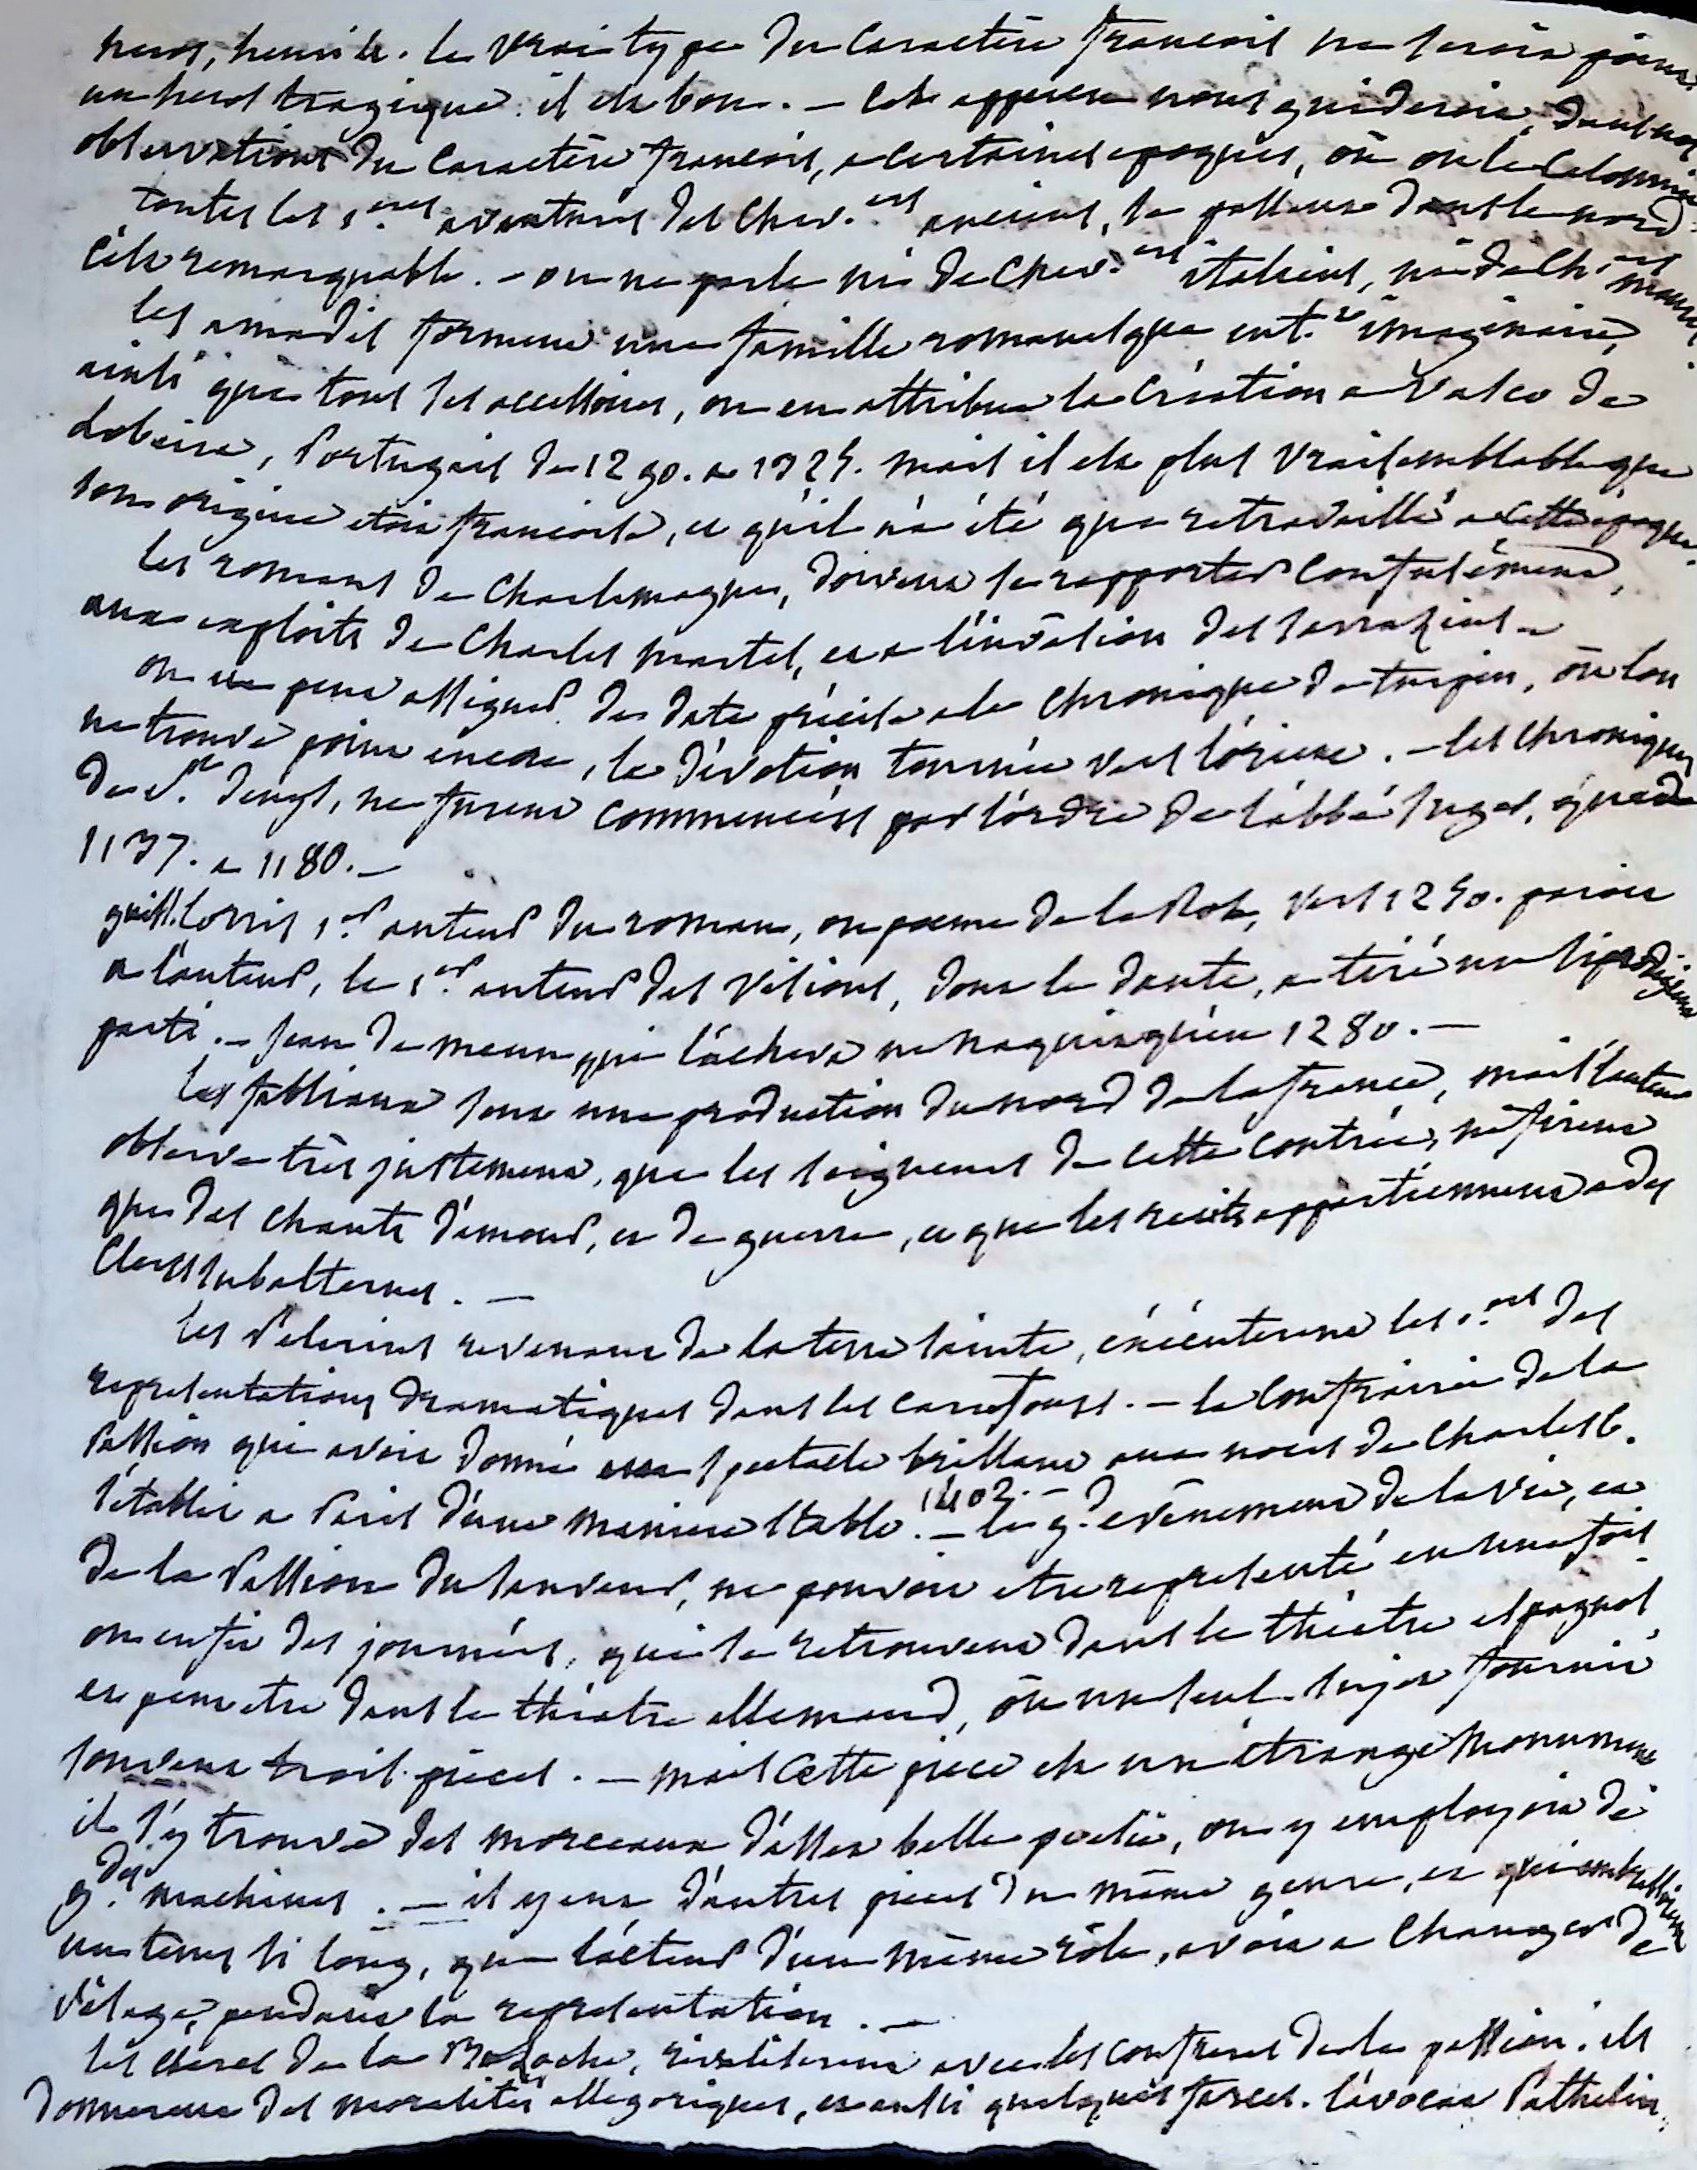 heros, . le vrai type du caractère francois ne seroit point
un heros tragique. il est bon. — cet apperçu nous guideroit, dans nos
observations du caractère francois, a certaines epoques, où on le calomnie
toutes les 1.eres avantures des chev.ers anciens, se passent dans le nord.
c'est remarquable. — on ne parle ni de chev.ers italiens, ni de ch.ers maures
les amadis forment une famille romanesque ent.t imaginaire,
ainsi que tous ses accessoires, on en attribue la création a Vasco de
Lobeira, Portugais de 1290. a 1325. mais il est plus vraisemblable que
son origine etoit francoise, et qu'il n'a été que retravaillé a cette époque.
les romans de Charlemagne, doivent se rapporter confusément,
aux exploits de Charles martel, et a l'invasion des sarrasins —
on ne peut assigner de date précise a la chronique de turpin, où l'on
ne trouve point encore, la dévotion tournée vers l'orient. — les chroniques
de S.t Denys, ne furent commencées par l'ordre de l'abbé suger, que de
1137. a 1180. —
guill. Lorris 1.er auteur du roman, ou poeme de la Rose, vers 1250. paroit
a l'auteur, le 1.er auteur des visions, dont le dante, a tiré un si prodigieux
parti. — jean de meun qui l'acheva ne naquit qu'en 1280. —
les fabliaux sont une production du nord de la france, mais l'auteur
observe très justement, que les seigneurs de cette contrée, ne firent
que des chants d'amour, et de guerre, et que les recits appartiennent a des
clercs subalternes. —
les Pelerins revenant de la terre sainte, éxécuterent les 1.eres des
representations dramatiques dans les carrefours. — la confrairie de la
Passion qui avoit donné un spectacle brillant aux noces de Charles 6.
s'établit a Paris d'une maniere stable. 1402. — le g.d evénement de la vie, et
de la Passion du sauveur, ne pouvoit etre representé en une fois
on en fit des journées, qui se retrouvent dans le théatre espagnol,
et peut etre dans le théatre allemand, où un seul sujet fournit
souvent trois pièces. — mais cette piece est un étrange monument
il s'y trouve des morceaux d'assez belle poesie, on y employoit déjà
g.des machines. — il y eut d'autres pieces du même genre, et qui embrassoient
un tems si long, que l'acteur d'un même rôle, avoit a changer de
visage, pendant la representation. —
les clercs de la Bazoche, rivaliserent avec les confreres de la passion. ils
donnerent des moralités allegoriques, et aussi quelques farces. l'avocat Pathelin,